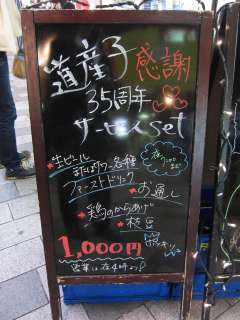 道産子 感謝
35周年
サービスset
*生ビール
またはサワー各種
ファーストドリンク
*お通し
*鶏のからあげ
*枝豆
1,000円
営業は夜4時〜